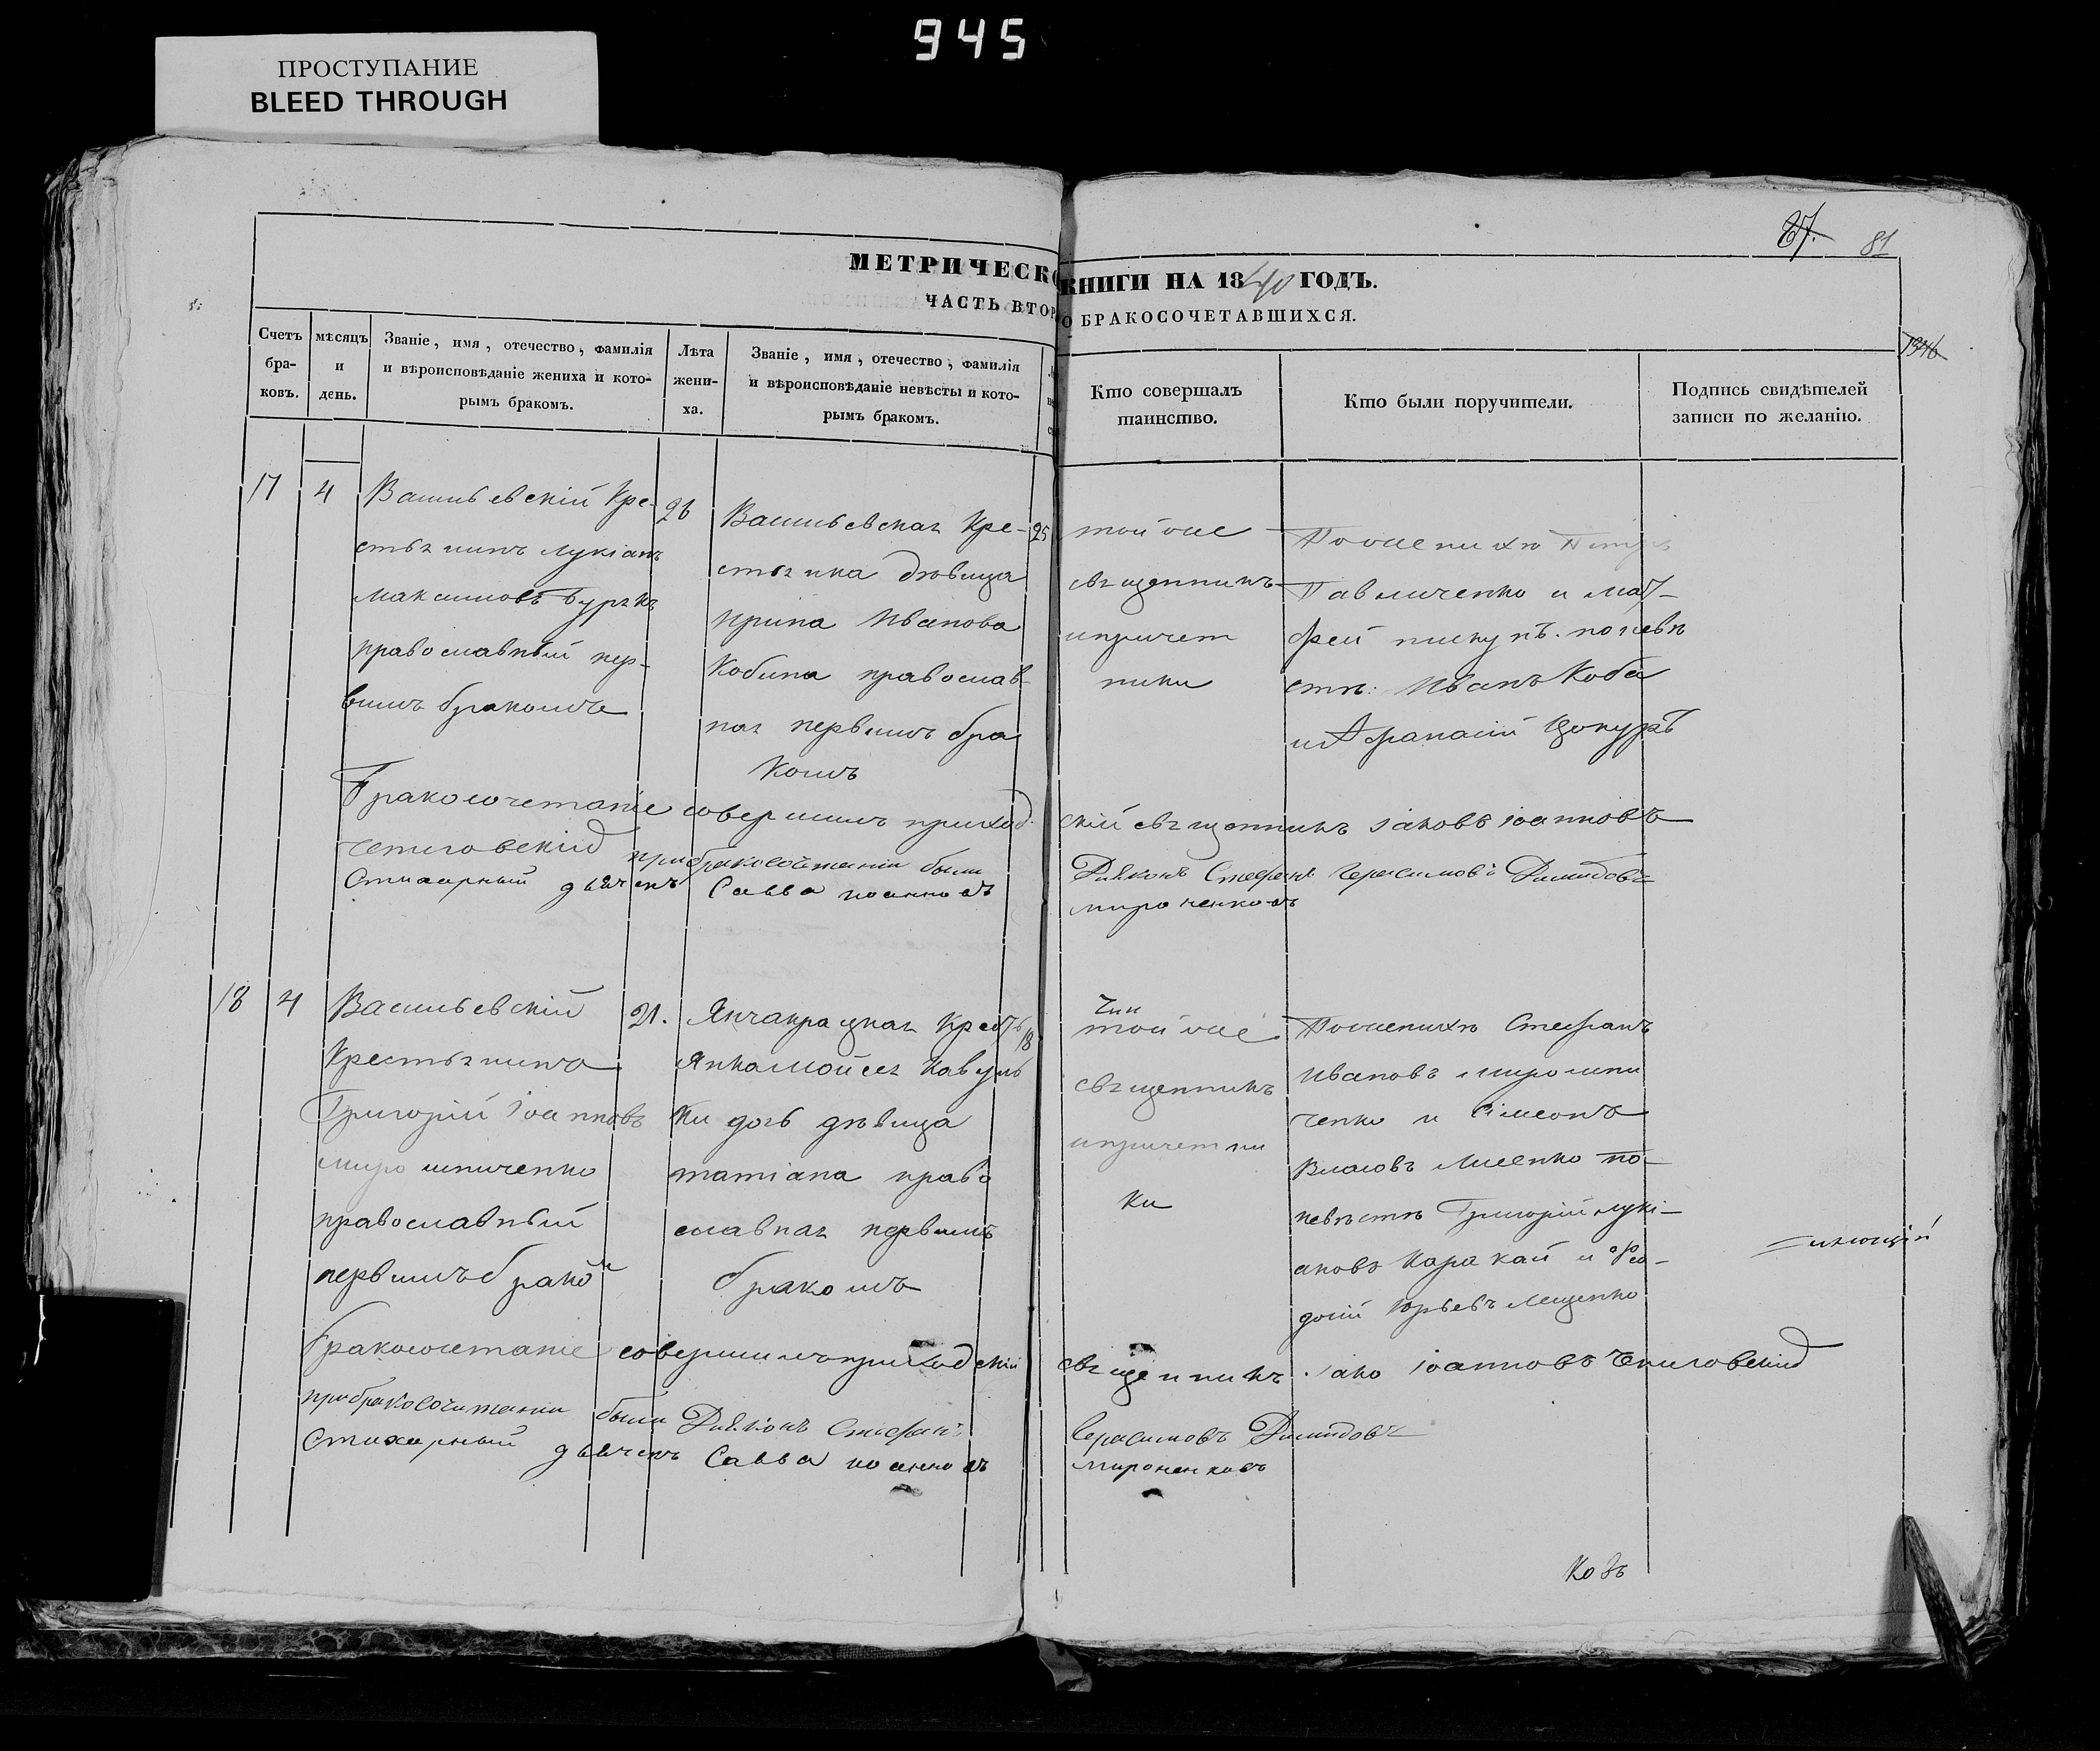 945
ПРОСТУПАНИЕ
BLEED THROUGH
87. 81
МЕТРИЧЕСКО КНИГИ НА 1840 ГОДЪ.
ЧАСТЬ ВТОР О БРАКОСОЧЕТАВШИХСЯ.
1346
Счетъ бра- ковъ.
мѣсяцъ и день.
Званіе, имя, отечество, фамилія
и вѣроисповѣданіе жениха и кото-
рымъ бракомъ.
Лѣта жени- ха.
Званіе, имя, отечество, фамилія
и вѣроисповѣданіе невѣсты и кото-
рымъ бракомъ.
Кто совершалъ
таинство.
Кто были поручители.
Подпись свидѣтелей
записи по желанію.
17
4
Васильевскій Кре-
стьянинъ Лукіанъ
Максимовъ Бурякъ
православный пер-
вымъ бракомъ
26
Васильевская Кре-
стьянка дѣвица
Ирина Иванова
Кобина православ-
ная первымъ бра
комъ
25
той же
священникъ
и причет
ники
По женихѣ Петръ
Павличенко и Мат-
фей пикунъ. по невѣ
стѣ: Иванъ Коба
и Афанасій Цокуръ
Бракосочетаніе совершилъ приход скій священникъ Іаковъ Іоанновъ
Чепиговскій
при бракосочетаніи были Діяконъ Стефанъ Герасимовъ Димидовъ
Стихарный дьячекъ Савва Иоанновъ Мироненковъ
18
4
Васильевскій
Крестьянинъ
Григорій Іоанновъ
Мирошниченко
православный
первымъ брако м
21.
Янчакрацкая Крест
янка Мойсея Кавунъ
ки дочь дѣвица
татіана право
славная первымъ
бракомъ
18
той же
священникъ
и причетни
ки
По женихѣ Стефанъ
Ивановъ Мирошни
ченко и Симеонъ
Власовъ Лисенко по-
невѣстѣ Григорій Лукі-
ановъ Каракай и Фео-
досій Юрьевъ Лещенко
Бракосочетаніе совершилъ приходскій священникъ Іако Іоанновъ Чепиговскій
при бракосочитании были Діяконъ Стефанъ Герасимовъ Димидовъ
Стихарный дьячекъ Савва Иоанновъ Мироненковъ